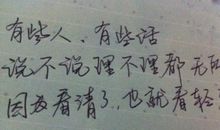 有些人、有些话
说不说理不理都无所
因为看清了,也就看轻